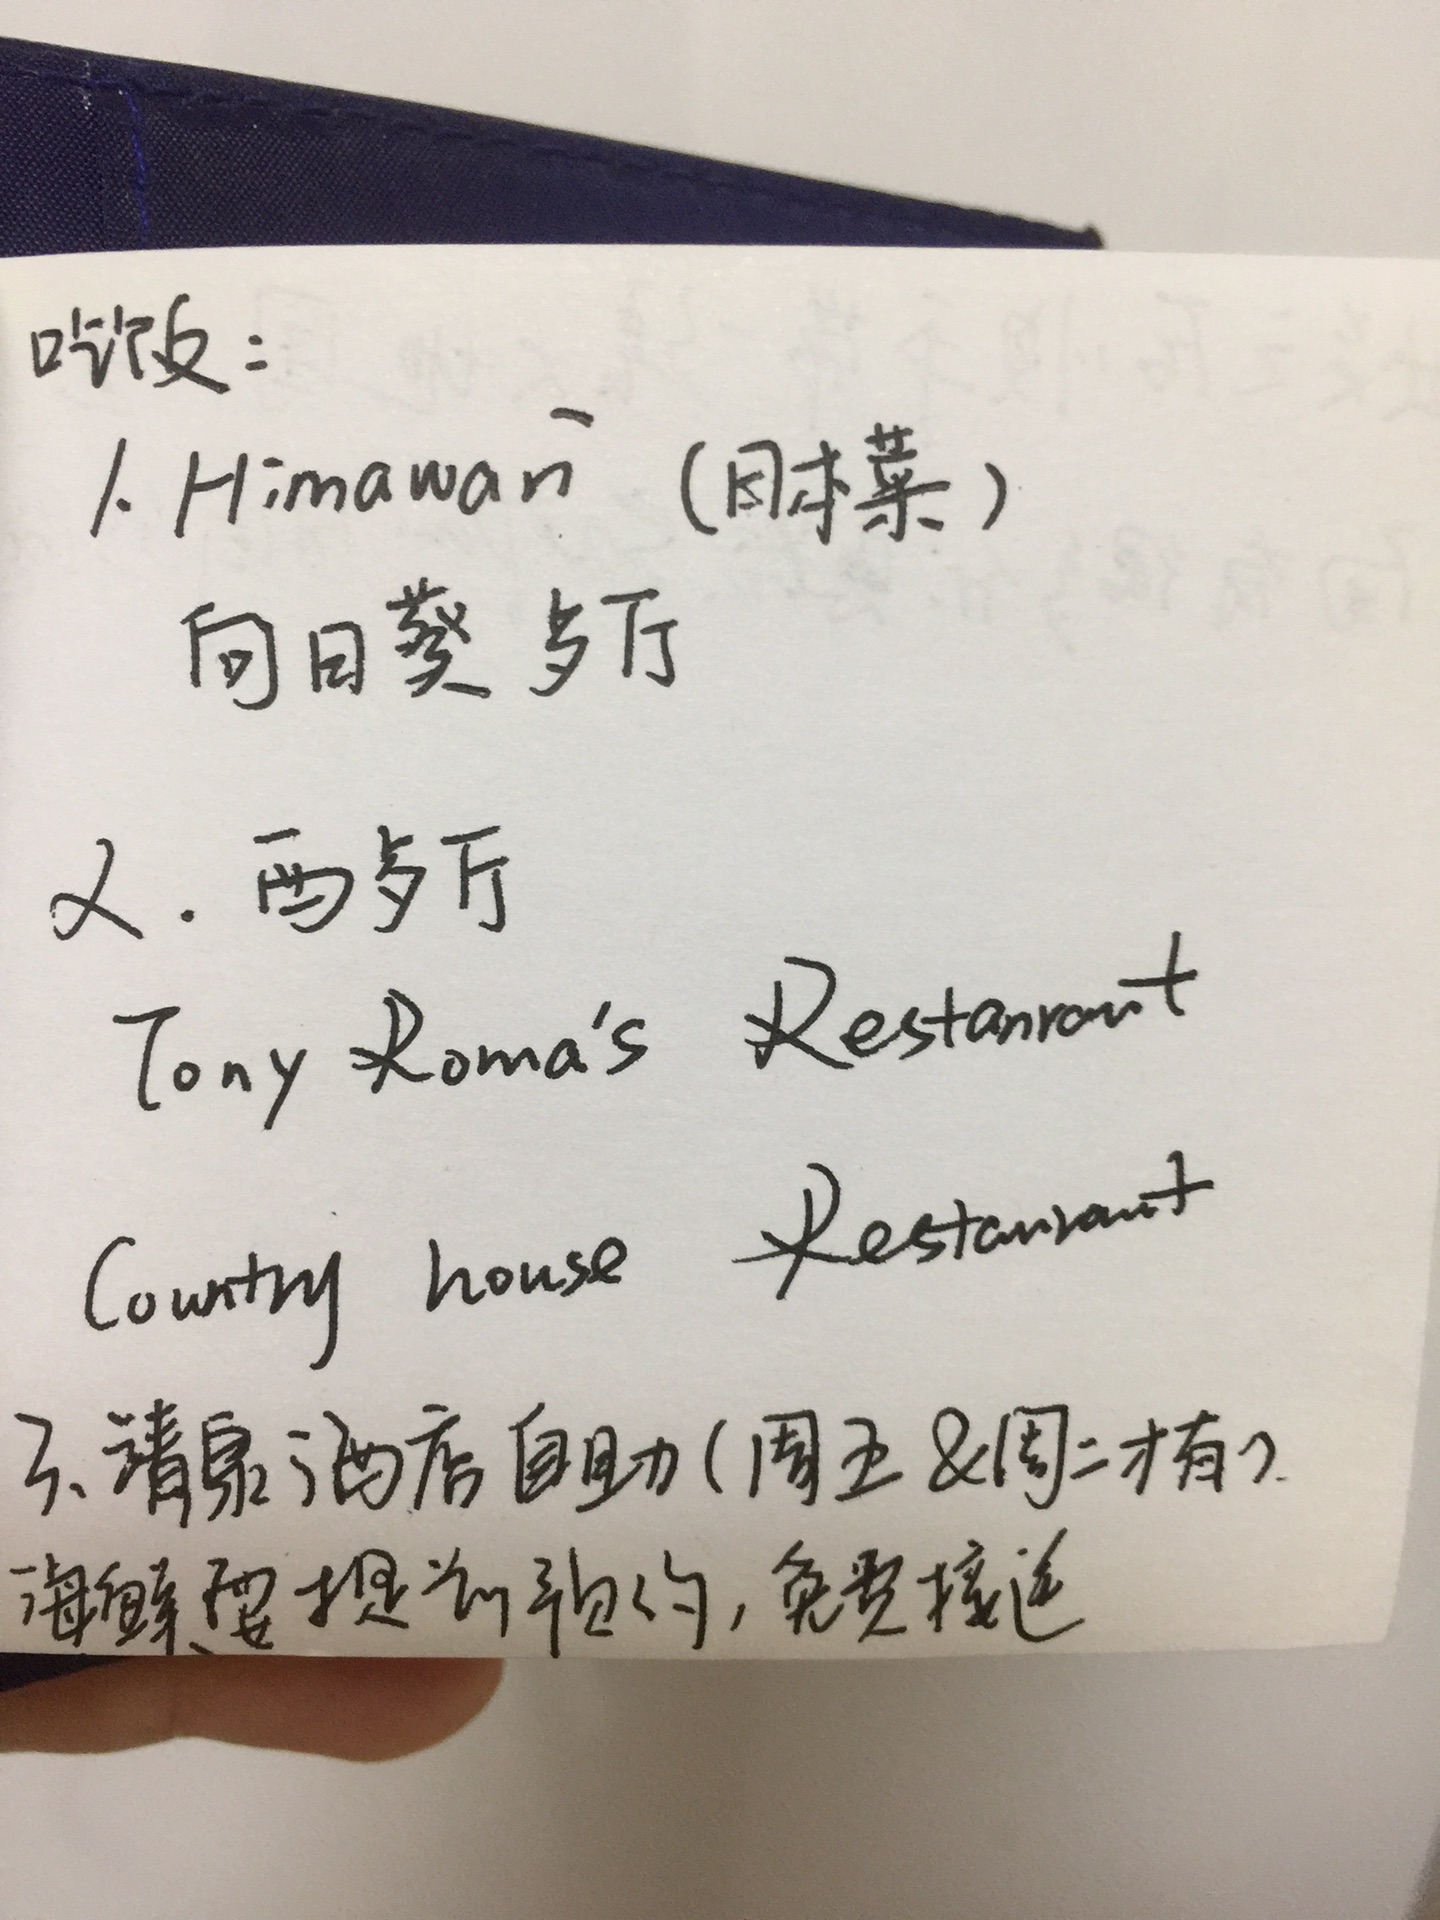 吃饭：
1. Himawari (日本菜)
向日葵歺厅
2. 西歺厅
Tony Roma's Restaurant
Country house Restaurant
3、清泉酒店自助(周五&周二才有).
海鲜要提前预约,免费接送